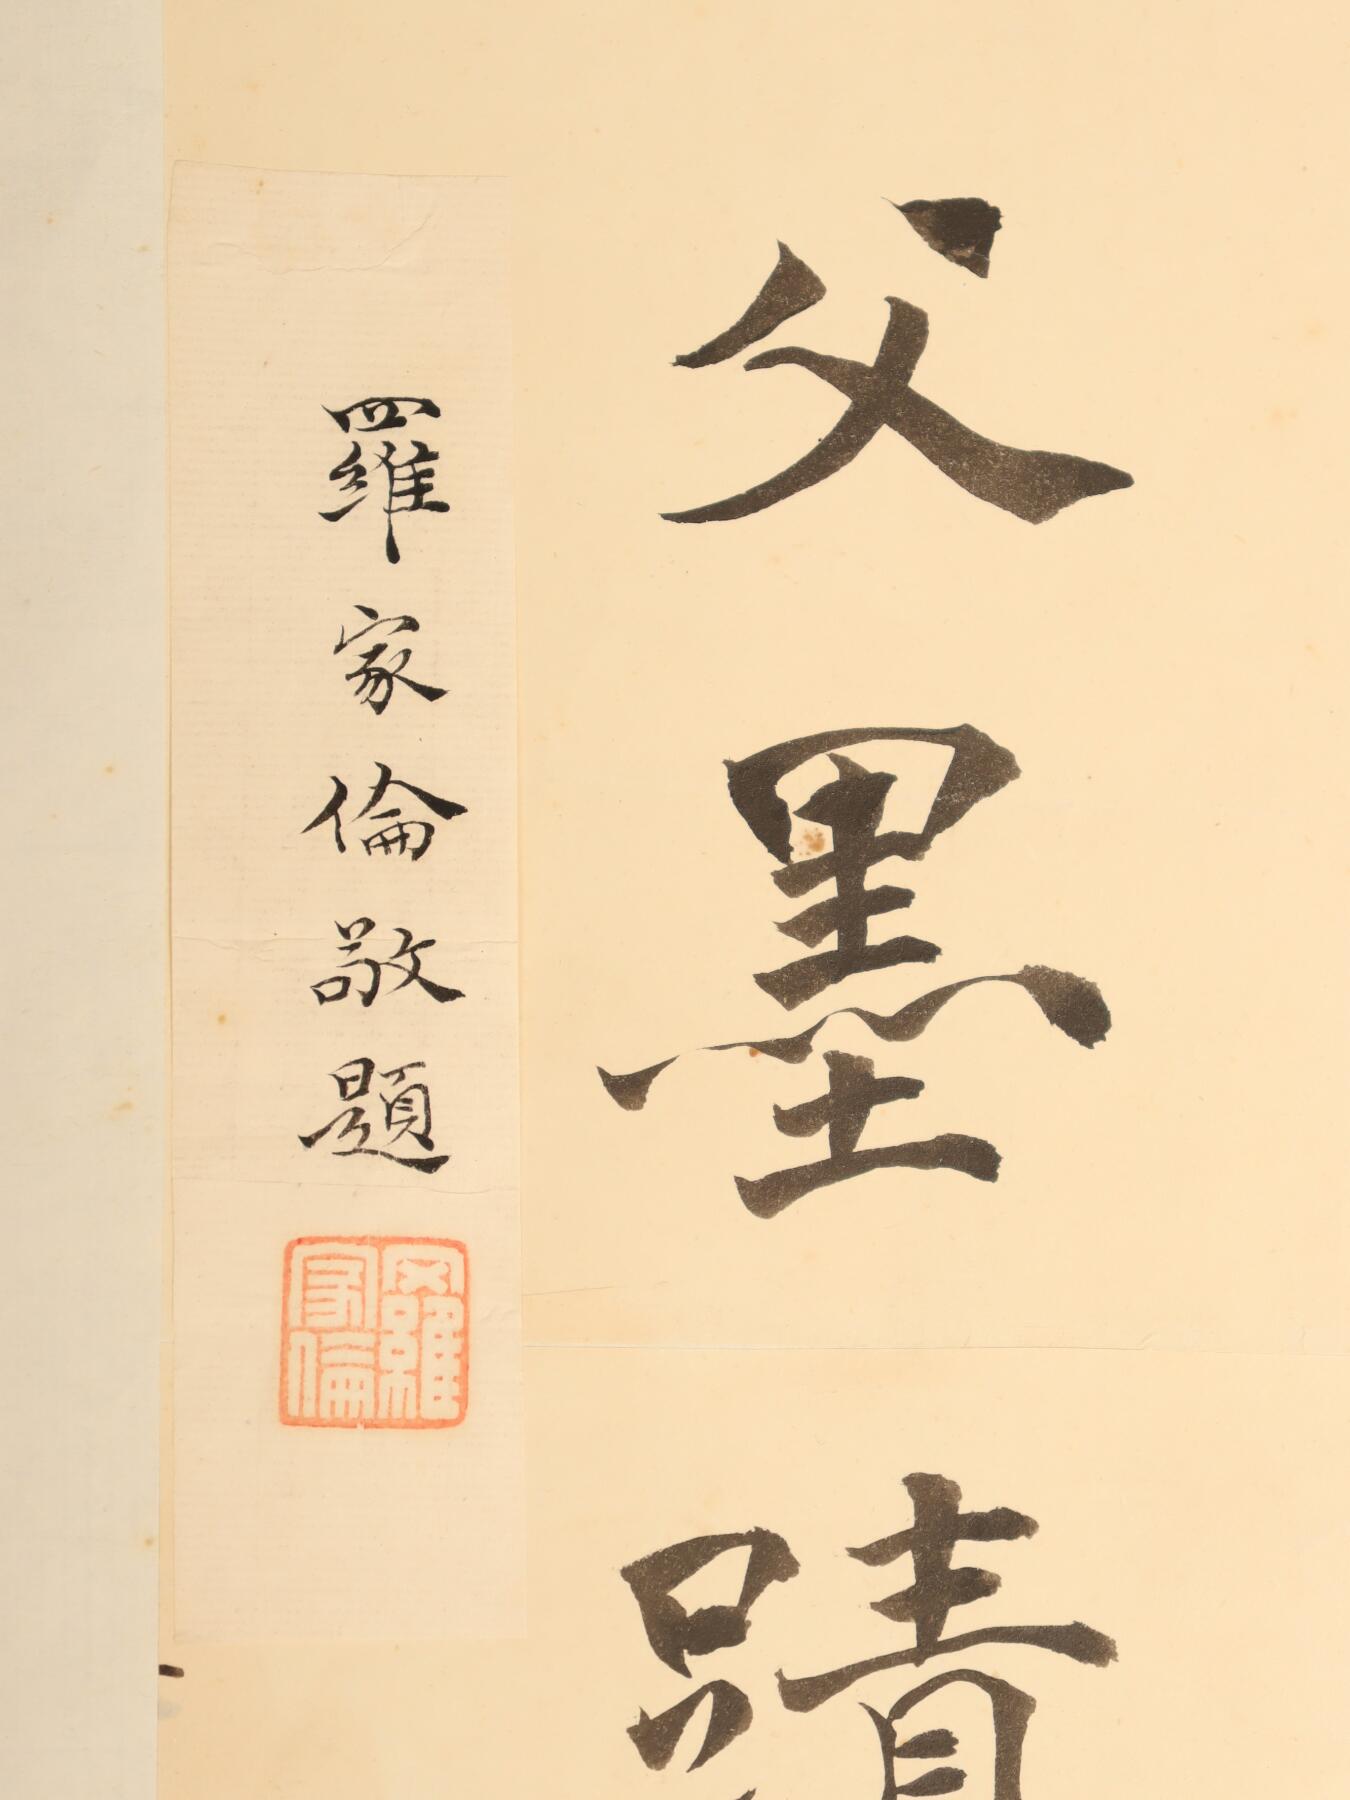 父墨蹟
羅家倫敬題
羅家倫